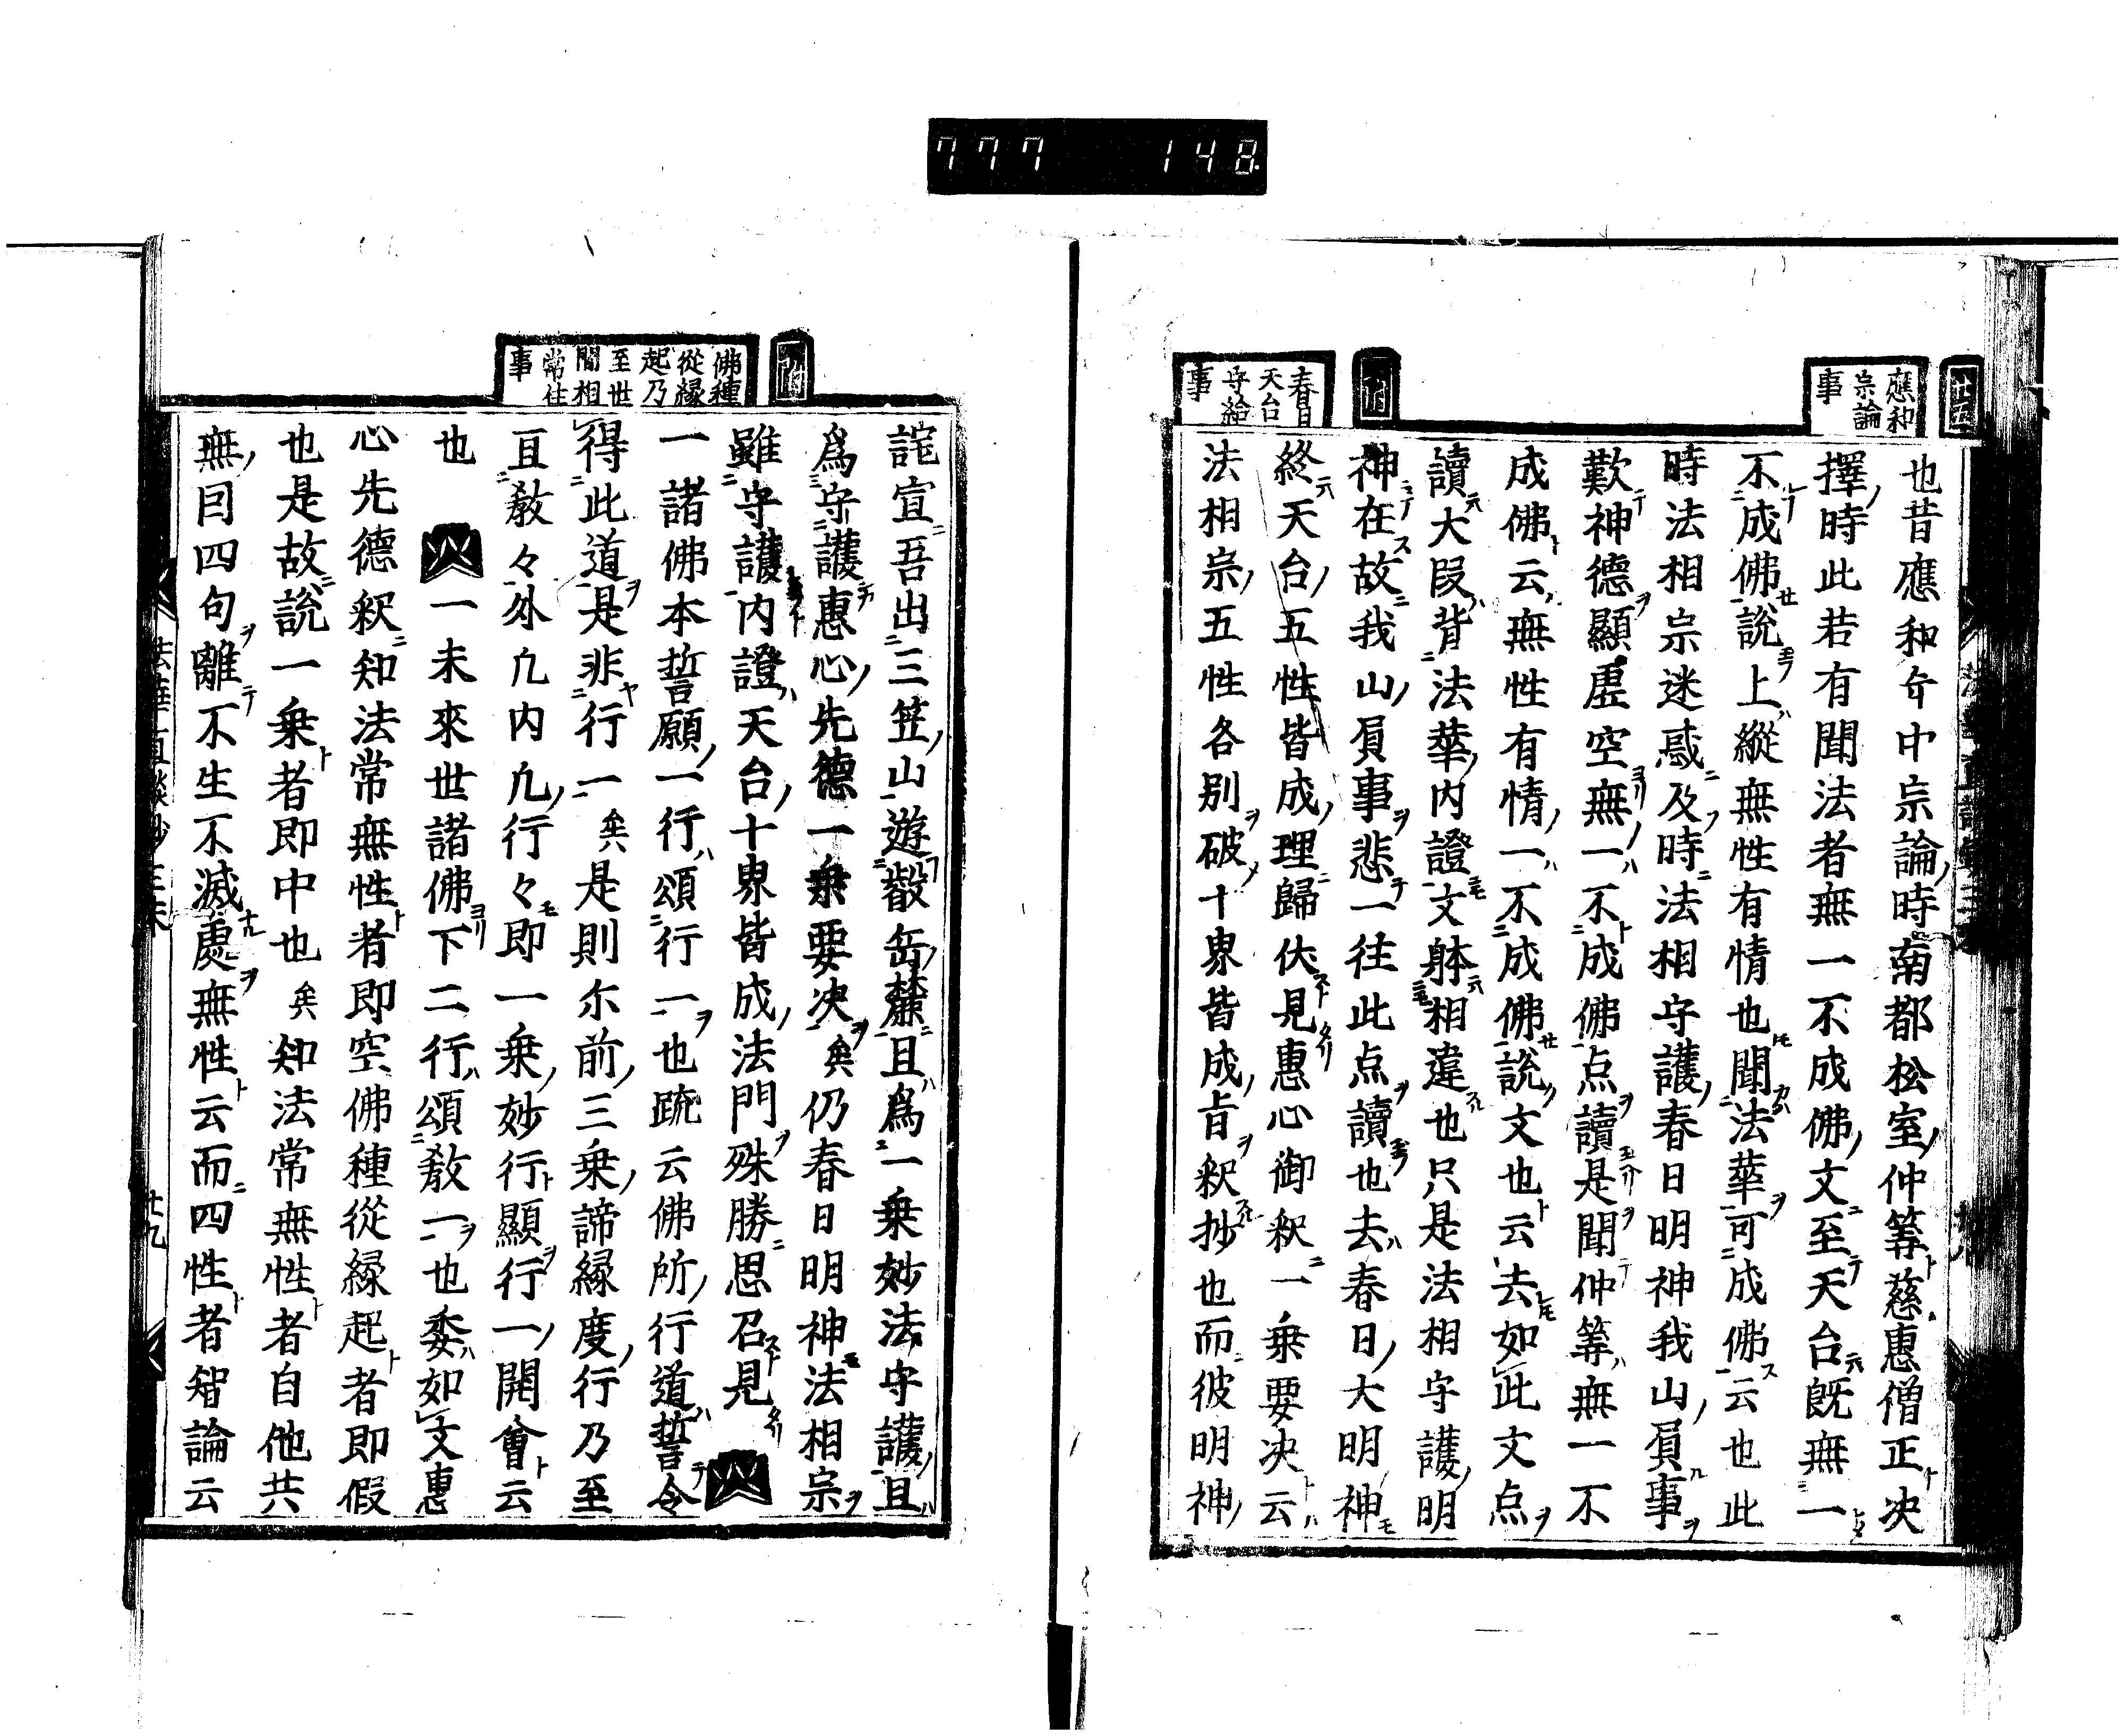 777 148
應和
宗論
事
春日
天台
守給
事
也昔應和年中宗論時南都松室仲筭慈惠僧正決
擇時此若有聞法者無一不成佛文至天台既無一
不成佛說上縱無性有情也聞法華可成佛云也此
時法相宗迷惑及時法相守護春日明神我山員事
歎神德顯虛空無一不成佛点讀是聞仲筭無一不
成佛云無性有情一不成佛說文也云去如此文点
讀大段背法華內證文躰相違也只是法相守護明
神在故我山員事悲一往此点讀也去春日大明神
終天台五性皆成理歸伏見惠心御釈一乗要决云
法相宗五性各別破十界皆成旨釈抄也而彼明神
佛種
從緣
起乃
至世
間相
常住
事
詫宣吾出三笠山遊叡岳麓且爲一乗妙法守護且
爲守護惠心先德一乗要决矣仍春日明神法相宗
雖守護內證天台十界皆成法門殊勝思召見
一諸佛本誓願一行頌行一也疏云佛所行道誓令
得此道是非行一矣是則尓前三乗諦緣度行乃至
且教々外凢內凢行々即一乗妙行顯行一開會云
也 一未來世諸佛下二行頌教一也委如文惠
心先德釈知法常無性者即空佛種從緣起者即假
也是故說一乗者即中也矣知法常無性者自他共
無因四句離不生不滅處無性云而四性者智論云
法華直談鈔三末
廿九